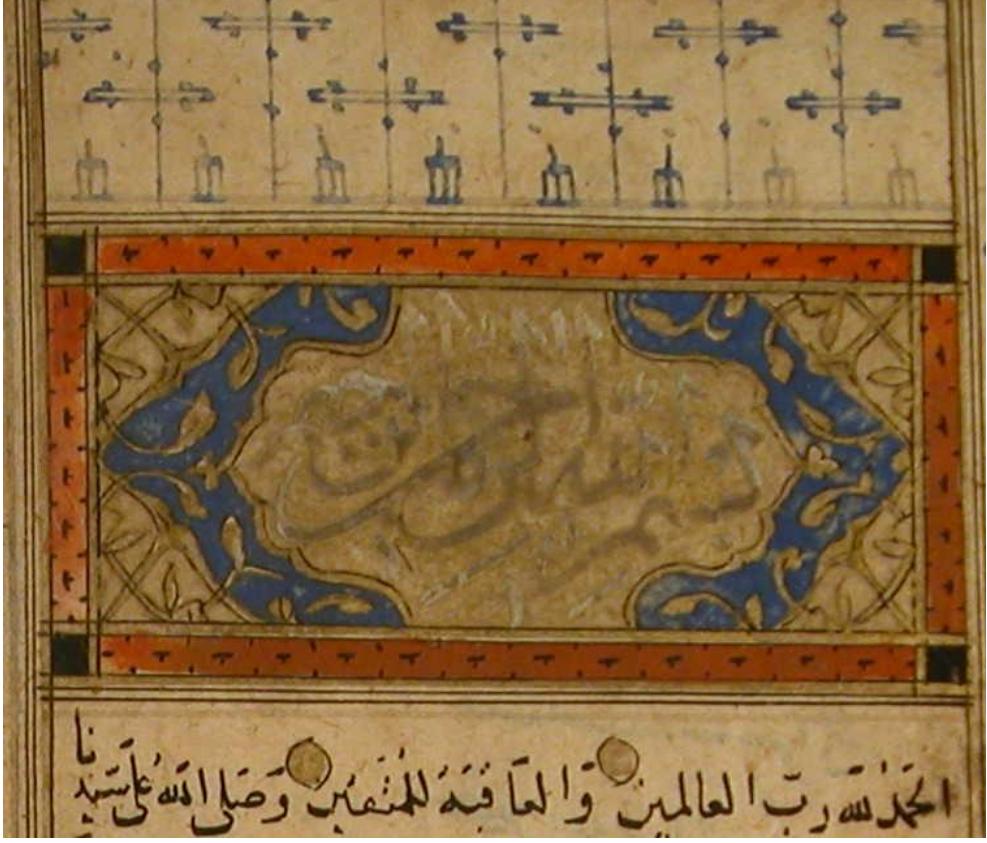 بسم الله الرحمن الرحيم
الحَمدُ لله رَبّ العالمين وَالعَاقبَة للمُتّقين وَصَلى الله عَلى سَيّدنا